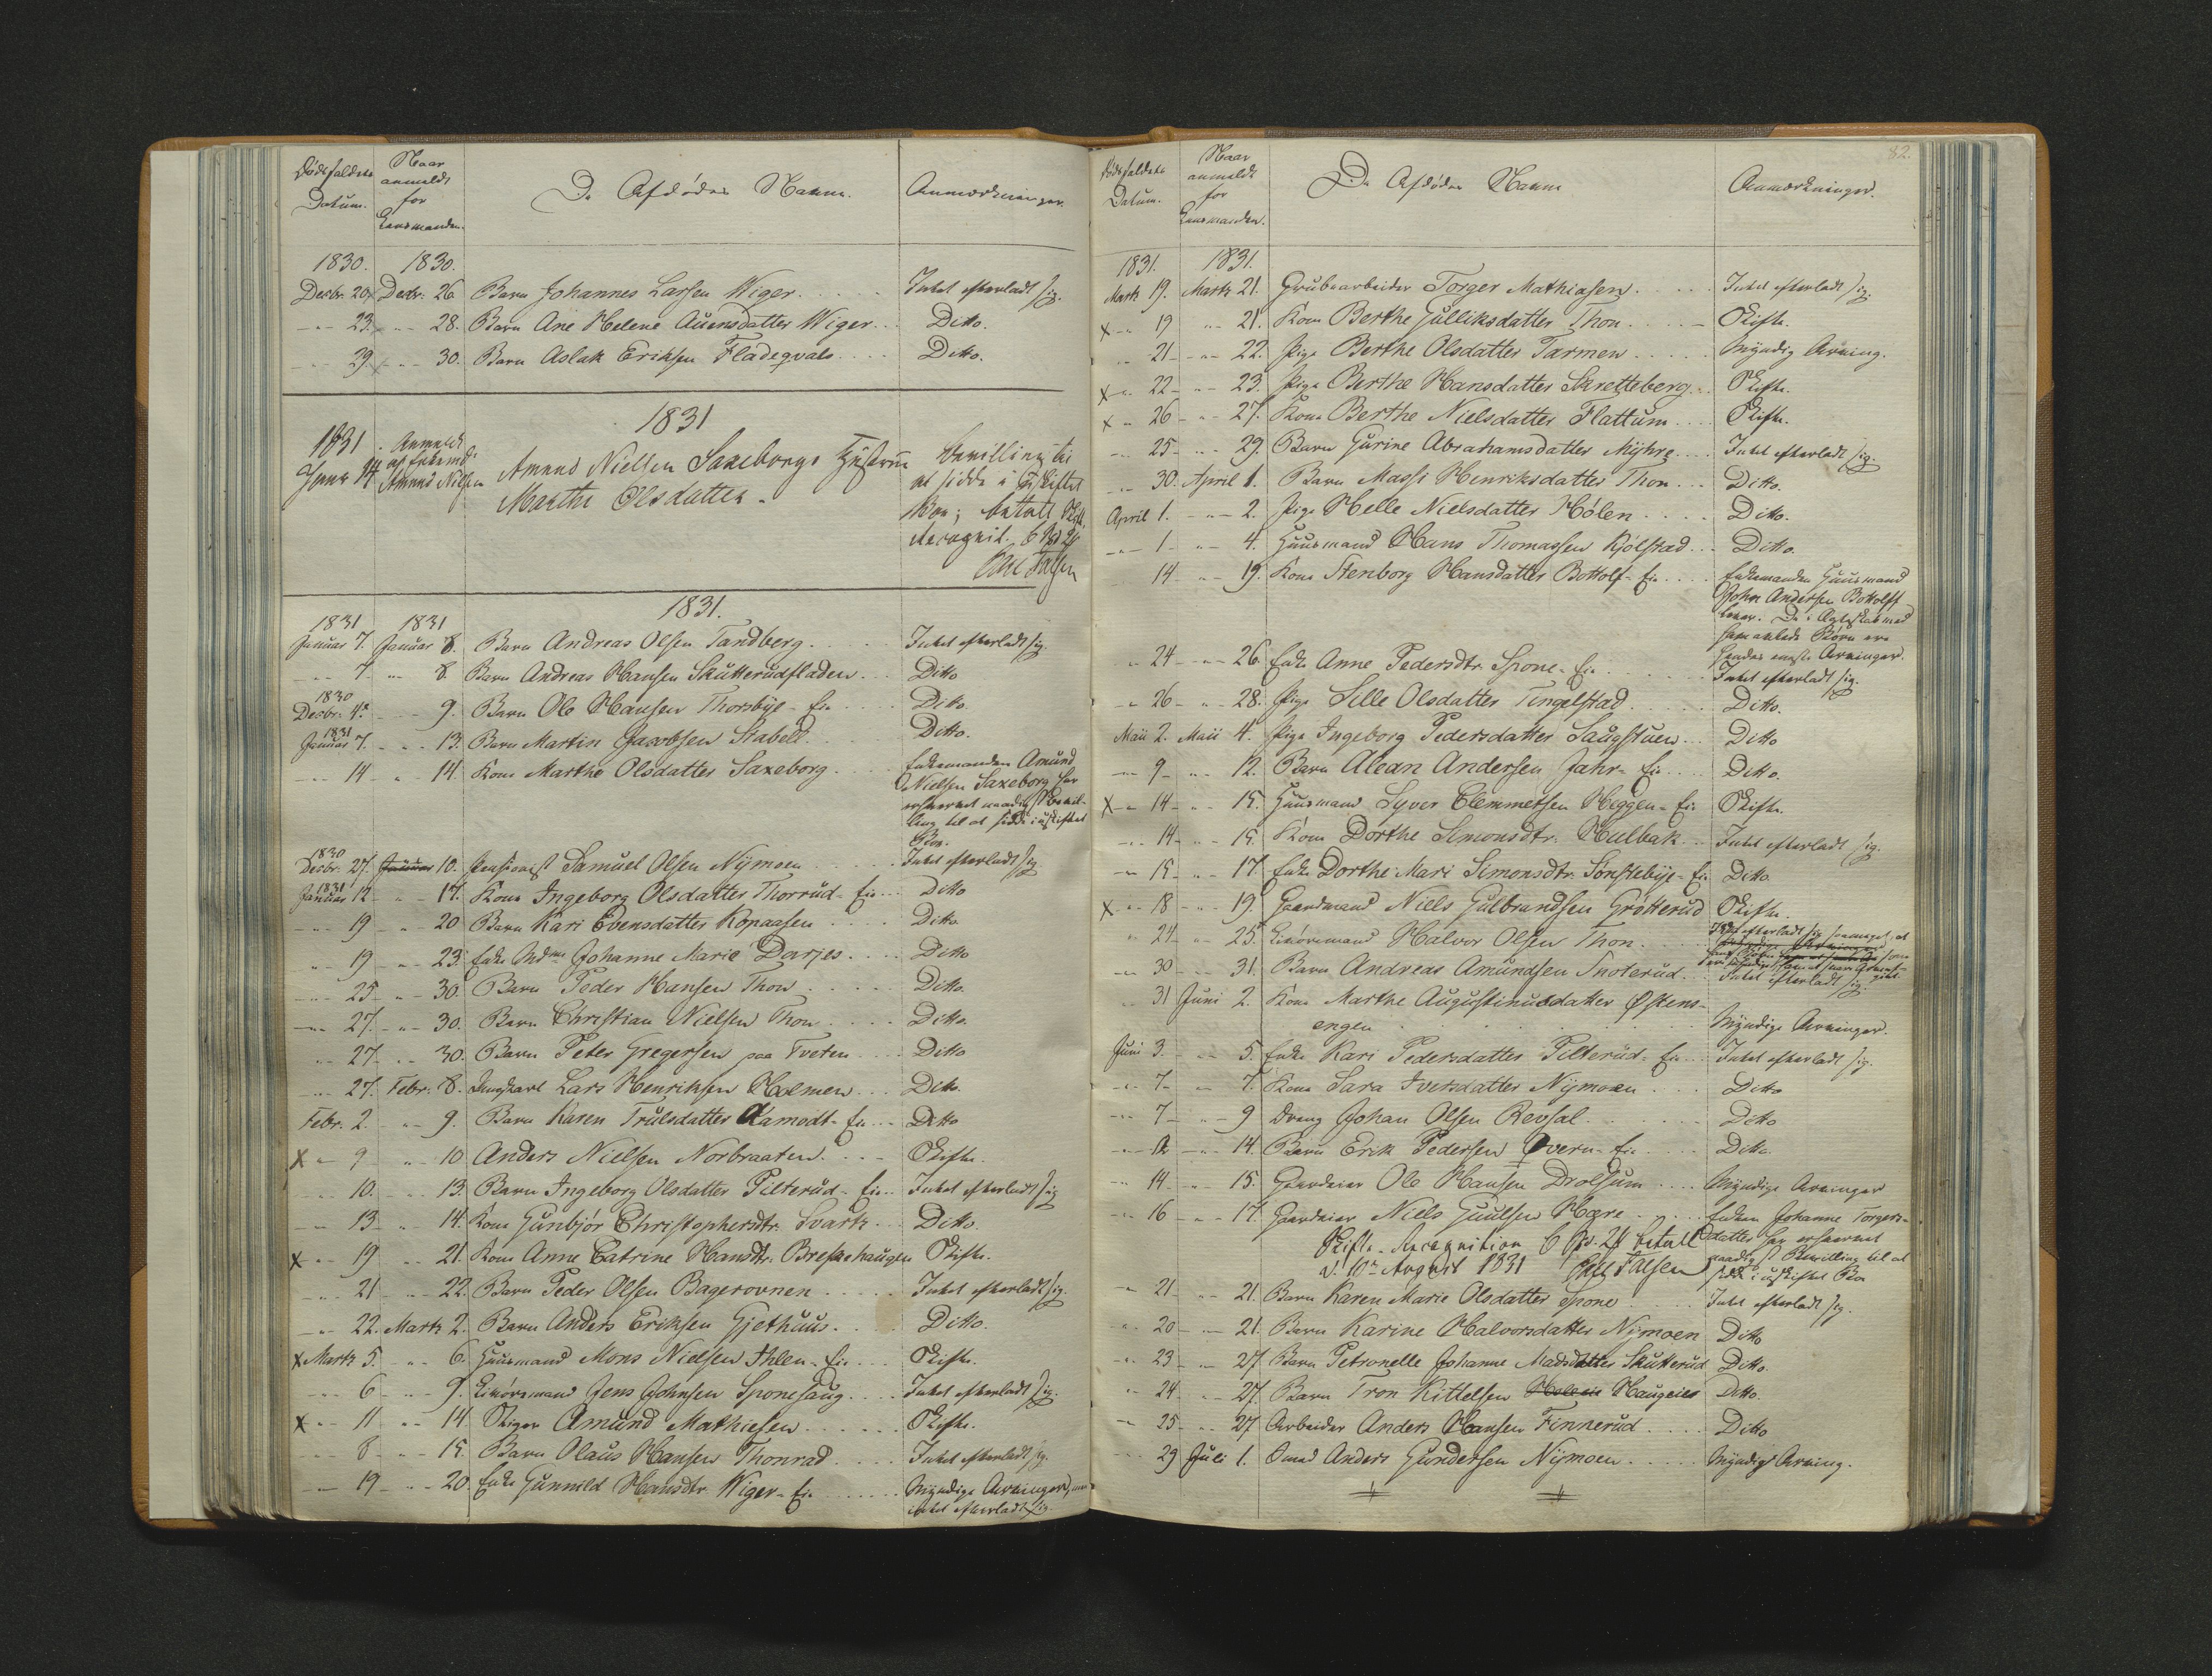 Dødsfaldets Datum.
Naar anmeldt for Lensmanden.
De Afdødes Navne.
Anmærkninger.
1830. 1830.
Decbr. 20. Decbr. 26. Barn Johannes Larsen Wiger. Intet efterladt sig.
-"- 23. -"- 28. Barn Ane Helene Auensdatter Wiger. Ditto.
-"- 29. -"- 30. Barn Aslak Eriksen Fladeqval. Ditto.
1831
1831 Januar 14 Anmeldt af Enkemd. Amund Nilsen Amund Nielsen Saxeborgs Hustrue Bevilling til
Marthe Olsdatter. at sidde i uskiftet
Boe; betalt
Recognit. 6 Spd 24
1831.
1831 1831
Januar 7. Januar 8. Barn Andreas Olsen Tandberg. Intet efterladt sig.
-"- 7. -"- 8. Barn Andreas Hansen Skutterudfladen. Ditto
1830
Decbr. 4. -"- 9. Barn Ole Hansen Thorsbye-Eie Ditto.
1831
Januar 7. -"- 13. Barn Martin Jacobsen Stabell. Ditto.
-"- 14 -"- 14. Kone Marthe Olsdatter Saxeborg. Enkemanden Amund
Nielsen Saxeborg har
erhvervet naadigst Bevil-
ling til at sidde i uskiftet
Boe.
1830
Decbr. 27. Januar 10. Pensionist Samuel Olsen Nÿmoen Intet efterladt sig
1831
Januar 12 -"- 17. Kone Ingeborg Olsdatter Thorrud-Eie Ditto
-"- 19 -"- 20 Barn Kari Evensdatter Kopaasen Ditto.
-"- 19 -"- 23. Enke Mdme Johanne Marie Darjes. Ditto
-"- 25 -"- 30. Barn Peder Hansen Thon Ditto.
-"- 27. -"- 30. Barn Christian Nielsen Thon Ditto.
-"- 27 -"- 30. Barn Peter Gregersen paa Tveten Ditto
-"- 27. Febr. 8. Ungkarl Lars Henriksen Holmen Ditto.
Febr. 2. -"- 9. Barn Karen Trulsdatter Aamodt-Eie Ditto
X -"- 9 -"- 10 Anders Nielsen Norbraaten. Skifte.
-"- 10. -"- 13. Barn Ingeborg Olsdatter Pilterud-Eie Intet efterladt sig
-"- 13 -"- 14. Kone Gunbjør Christophersdtr. Svarte Ditto.
X -"- 19 -"- 21. Kone Anne Catrine Hansdtr. Breskehaugen Skifte.
-"- 21 -"- 22. Barn Peder Olsen Bagerovnen Intet efterladt sig.
-"- 22. Marts 2. Barn Anders Eriksen Gjethuus. Ditto.
X Marts 5. -"- 6. Huusmand Mons Nielsen Ihlen-Eie Skifte.
-"- 6 -"- 9. Jens Johnsen Sponesaug. Intet efterladt sig.
X -"- 11 -"- 14 Stiger Amund Mathiesen Skifte.
-"- 8 -"- 15. Barn Olaus Hansen Thonrad. Intet efterladt sig.
-"- 19 -"- 20. Enke Gunnild Hansdtr. Wiger-Eie Myndige Arvinger, men
intet efterladt sig.
82.
Dødsfaldets Datum.
Naar anmeldt for Lensmanden.
De Afdødes Navne
Anmærkninger.
1831. 1831.
Marts 19. Marts 21. Grubearbeider Torger Mathiasen. Intet efterladt sig.
X -"- 19 -"- 21. Kone Berthe Gulliksdatter Thon. Skifte.
-"- 21 -"- 22. Pige Berthe Olsdatter Tarmen Myndig Arving.
X -"- 22 -"- 23. Pige Berthe Hansdatter Skretteberg. Skifte.
X -"- 26 -"- 27. Kone Berthe Nielsdatter Flattum. Skifte.
-"- 25 -"- 29. Barn Gurine Abrahamsdatter Myhre. Intet efterladt sig.
-"- 30. April 1. Barn Massi Henriksdatter Thon Ditto.
April 1. -"- 2. Pige Helle Nielsdatter Hølen Ditto.
-"- 1 -"- 4. Huusmand Hans Thomassen Kjølstad Ditto.
14 -"- 19. Kone Stenborg Hansdatter Bottolf-Eie Enkemanden Huusmand
John Andersen Bottolfs
lever. De i Ægteskab med
ham avlede Børn ere
hendes eneste Arvinger.
-"- 24 -"- 26. Enke Anne Pedersdtr. Spone-Eie Intet efterladt sig.
-"- 26 -"- 28. Pige Sille Olsdatter Tingelstad Ditto.
Maii 2. Maii 4. Pige Ingeborg Pedersdatter Saugstuen Ditto
-"- 9 -"- 12. Barn Alean Andersen Fahr-Eie Ditto.
X -"- 14 -"- 15. Huusmand Syver Clemmetsen Heggen-Eie Skifte.
-"- 14 -"- 15. Kone Dorthe Simonsdtr. Hulbak Intet efterladt sig.
-"- 15 -"- 17. Enke Dorthe Mari Simonsdtr. Sønstebye-Eie Ditto.
X -"- 18 -"- 19. Gaardmand Niels Gulbrandsen Grøtterud Skifte.
-"- 24 -"- 25. Halvor Olsen Thon.
-"- 30 -"- 31. Barn Andreas Amundsen Snoterud. Intet efterladt sig.
-"- 31 Juni 2. Kone Marthe Augustinusdatter Østens-
engen Myndige Arvinger.
Juni 3. -"- 5. Enke Kari Pedersdatter Pilterud-Eie Intet efterladt sig.
-"- 7 -"- 7. Kone Sara Iversdatter Nÿmoen Ditto
-"- 7 -"- 9 Dreng Johan Olsen Revsal. Ditto
-"- 12 -"- 14. Barn Erik Pedersen Øvern-Eie Ditto.
-"- 14 -"- 15. Gaardeier Ole Hansen Drolsum Myndige Arvinger
-"- 16 -"- 17. Gaardeier Niels Guulsen Hære Enken Johanne Torgers-
datter har erhvervet
naadigst Bevilling til at
sidde i uskiftet Boe
Skifte-Recognition 6 Spd 24 betalt
d. 10de August 1831 Falsen
-"- 21 -"- 21. Barn Karen Marie Olsdatter Spone Intet efterladt sig.
-"- 20 -"- 21. Barn Karine Halvorsdatter Nÿmoen Ditto
-"- 23 -"- 27. Barn Petronelle Johanne Madsdatter Skutterud Ditto.
-"- 24 -"- 27. Barn Tron Kittelsen Haugeies Ditto.
-"- 25 -"- 27 Arbeider Anders Hansen Finnerud. Ditto
-"- 29 Juli 1. Smed Anders Gundersen Nÿmoen Myndig Arving.